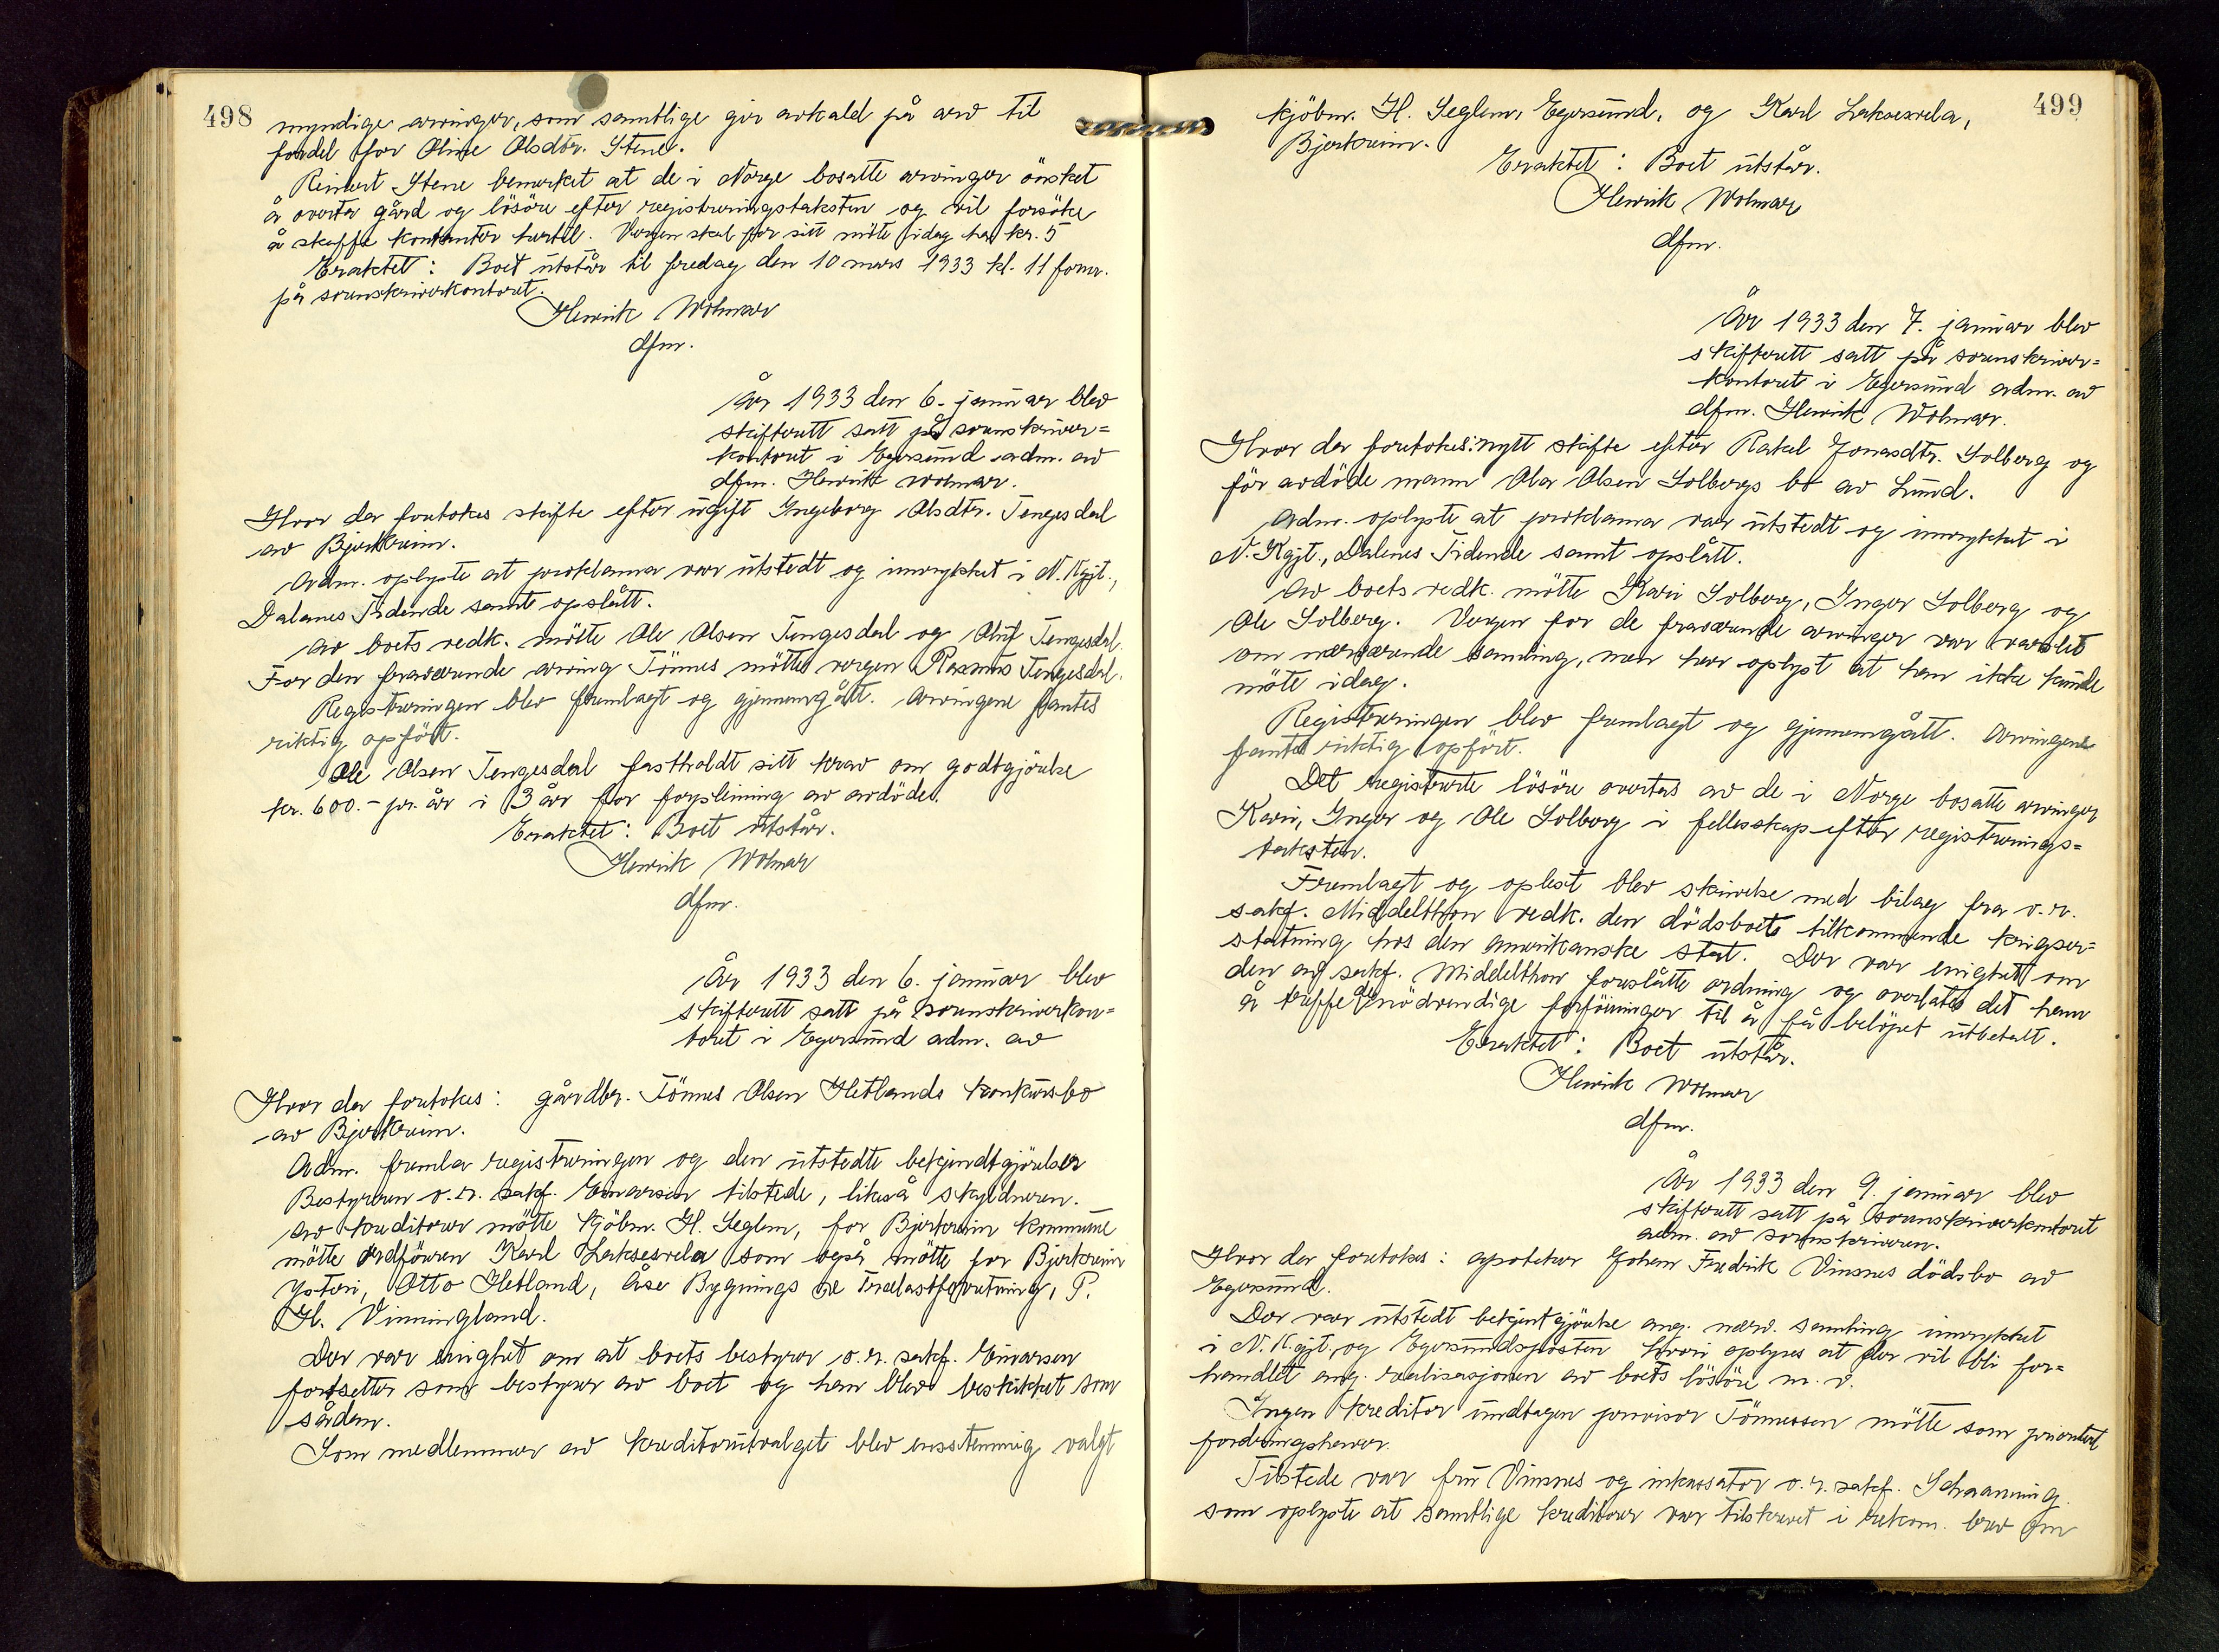 498
myndige arvinger, som samtlige gir avkald på arv til
fordel for Oline Olsdtr. Stene.
Reinert Stene bemerket at de i Norge bosatte arvinger önsket
å overta gård og lösöre efter registreringstaksten og vil forsöke
å skaffe kontanter hertil. Vergen skal for sitt möte idag ha kr. 5
Eraktet: Boet utstår til fredag den 10 mars 1933 kl. 11 form.
på sorenskriverkontoret.
Henrik Wolmar
dfm.
År 1933 den 6. januar blev
skifterett satt på sorenskriver=
kontoret i Egersund adm. av
dfm. Henrik Wolmar.
Hvor der foretokes skifte efter ugift Ingeborg Olsdtr. Tengesdal
av Bjerkreim.
Adm. oplyste at proklama var utstedt og innrykket i N. Kgjt.,
Dalanes Tidende samt opslått.
Av boets vedk. mötte Ole Olsen Tengesdal og Oluf Tengesdal.
For den fraværende arving Tönnes mötte vergen Rasmus Tengesdal.
Registreringen blev fremlagt og gjennemgått. Arvingene fantes
riktig opfört.
Ole Olsen Tengesdal fastholdt sitt krav om godtgjörelse
kr. 600.- pr. år i 3 år for forpleining av avdöde.
Eraktet: Boet utstår.
Henrik Wolmar
dfm.
År 1933 den 6. januar blev
skifterett satt på sorenskriverkon=
toret i Egersund adm. av
Hvor der foretokes: gårdbr. Tönnes Olsen Hetlands konkursbo
av Bjerkreim.
Adm. fremla registreringen og den utstedte bekjendtgjörelser
Bestyreren o.r. sakf. Einarsen tilstede, likeså skyldneren.
Av kreditorer mötte kjöbm. H. Seglem, for Bjerkreim kommune
mötte ordföreren Karl Laksesvela som også mötte for Bjerkreim
Ysteri, Otto Hetland, Åse Bygnings og Trælastforretning, P.
H. Vinningland.
Der var enighet om at boets bestyrer o.r. sakf. Einarsen
fortsetter som bestyrer av boet og han blev beskikket som
sådan.
Som medlemmer av kreditorutvalget blev enstemmig valgt
499
kjöbm. H. Seglem, Egersund, og Karl Laksesvela,
Bjerkreim.
Eraktet: Boet utstår.
Henrik Wolmar
dfm.
År 1933 den 7. januar blev
skifterett satt på sorenskriver=
kontoret i Egersund adm. av
dfm. Henrik Wolmar.
Hvor der foretokes: nytt skifte efter Rakel Jonasdtr. Solberg og
för avdöde mann Ola Olsen Solbergs bo av Lund.
Adm. oplyste at proklama var utstedt og innrykket i
N. Kgjt., Dalenes Tidende samt opslått.
Av boets vedk. mötte Karin Solberg, Inger Solberg og
Ole Solberg. Vergen for de fraværende arvinger var varslet
om nærværende samling, men har oplyst at han ikke kunde
möte idag.
Registreringen blev fremlagt og gjennemgått. Arvingene
fantes riktig opfört.
Det registrerte lösöre overtas av de i Norge bosatte arvinger
Karin, Inger og Ole Solberg i fellesskap efter registrerings=
taksten.
Fremlagt og oplest blev skrivelse med bilag fra o.r.
sakf. Middelthon vedk. den dödsboet tilkommende krigser=
statning hos den amerikanske stat. Der var enighet om
den av sakf. Middelthon foreslåtte ordning og overlates det ham
å treffe de nödvendige forföininger til å få belöpet utbetalt.
Eraktet: Boet utstår.
Henrik Wolmar
dfm.
År 1933 den 9. januar blev
skifterett satt på sorenskriverkontoret
adm. av sorenskriveren.
Hvor der foretokes: apoteker Johan Fredrik Vinsnes dödsbo av
Egersund.
Der var utstedt bekjentgjörelse ang. nærv. samling innrykket
i N. K.gjt. og Egersundsposten hvori oplyses at der vil bli for=
handlet ang. realisasjonen av boets lösöre m.v.
Ingen kreditor undtagen provisor Tönnessen mötte som prioritert
fordringshaver.
Tilstede var fru Vinsnes og inkassator o.r. sakf. Schaanning
som oplyste at samtlige kreditorer var tilskrevet i rekom. brev om